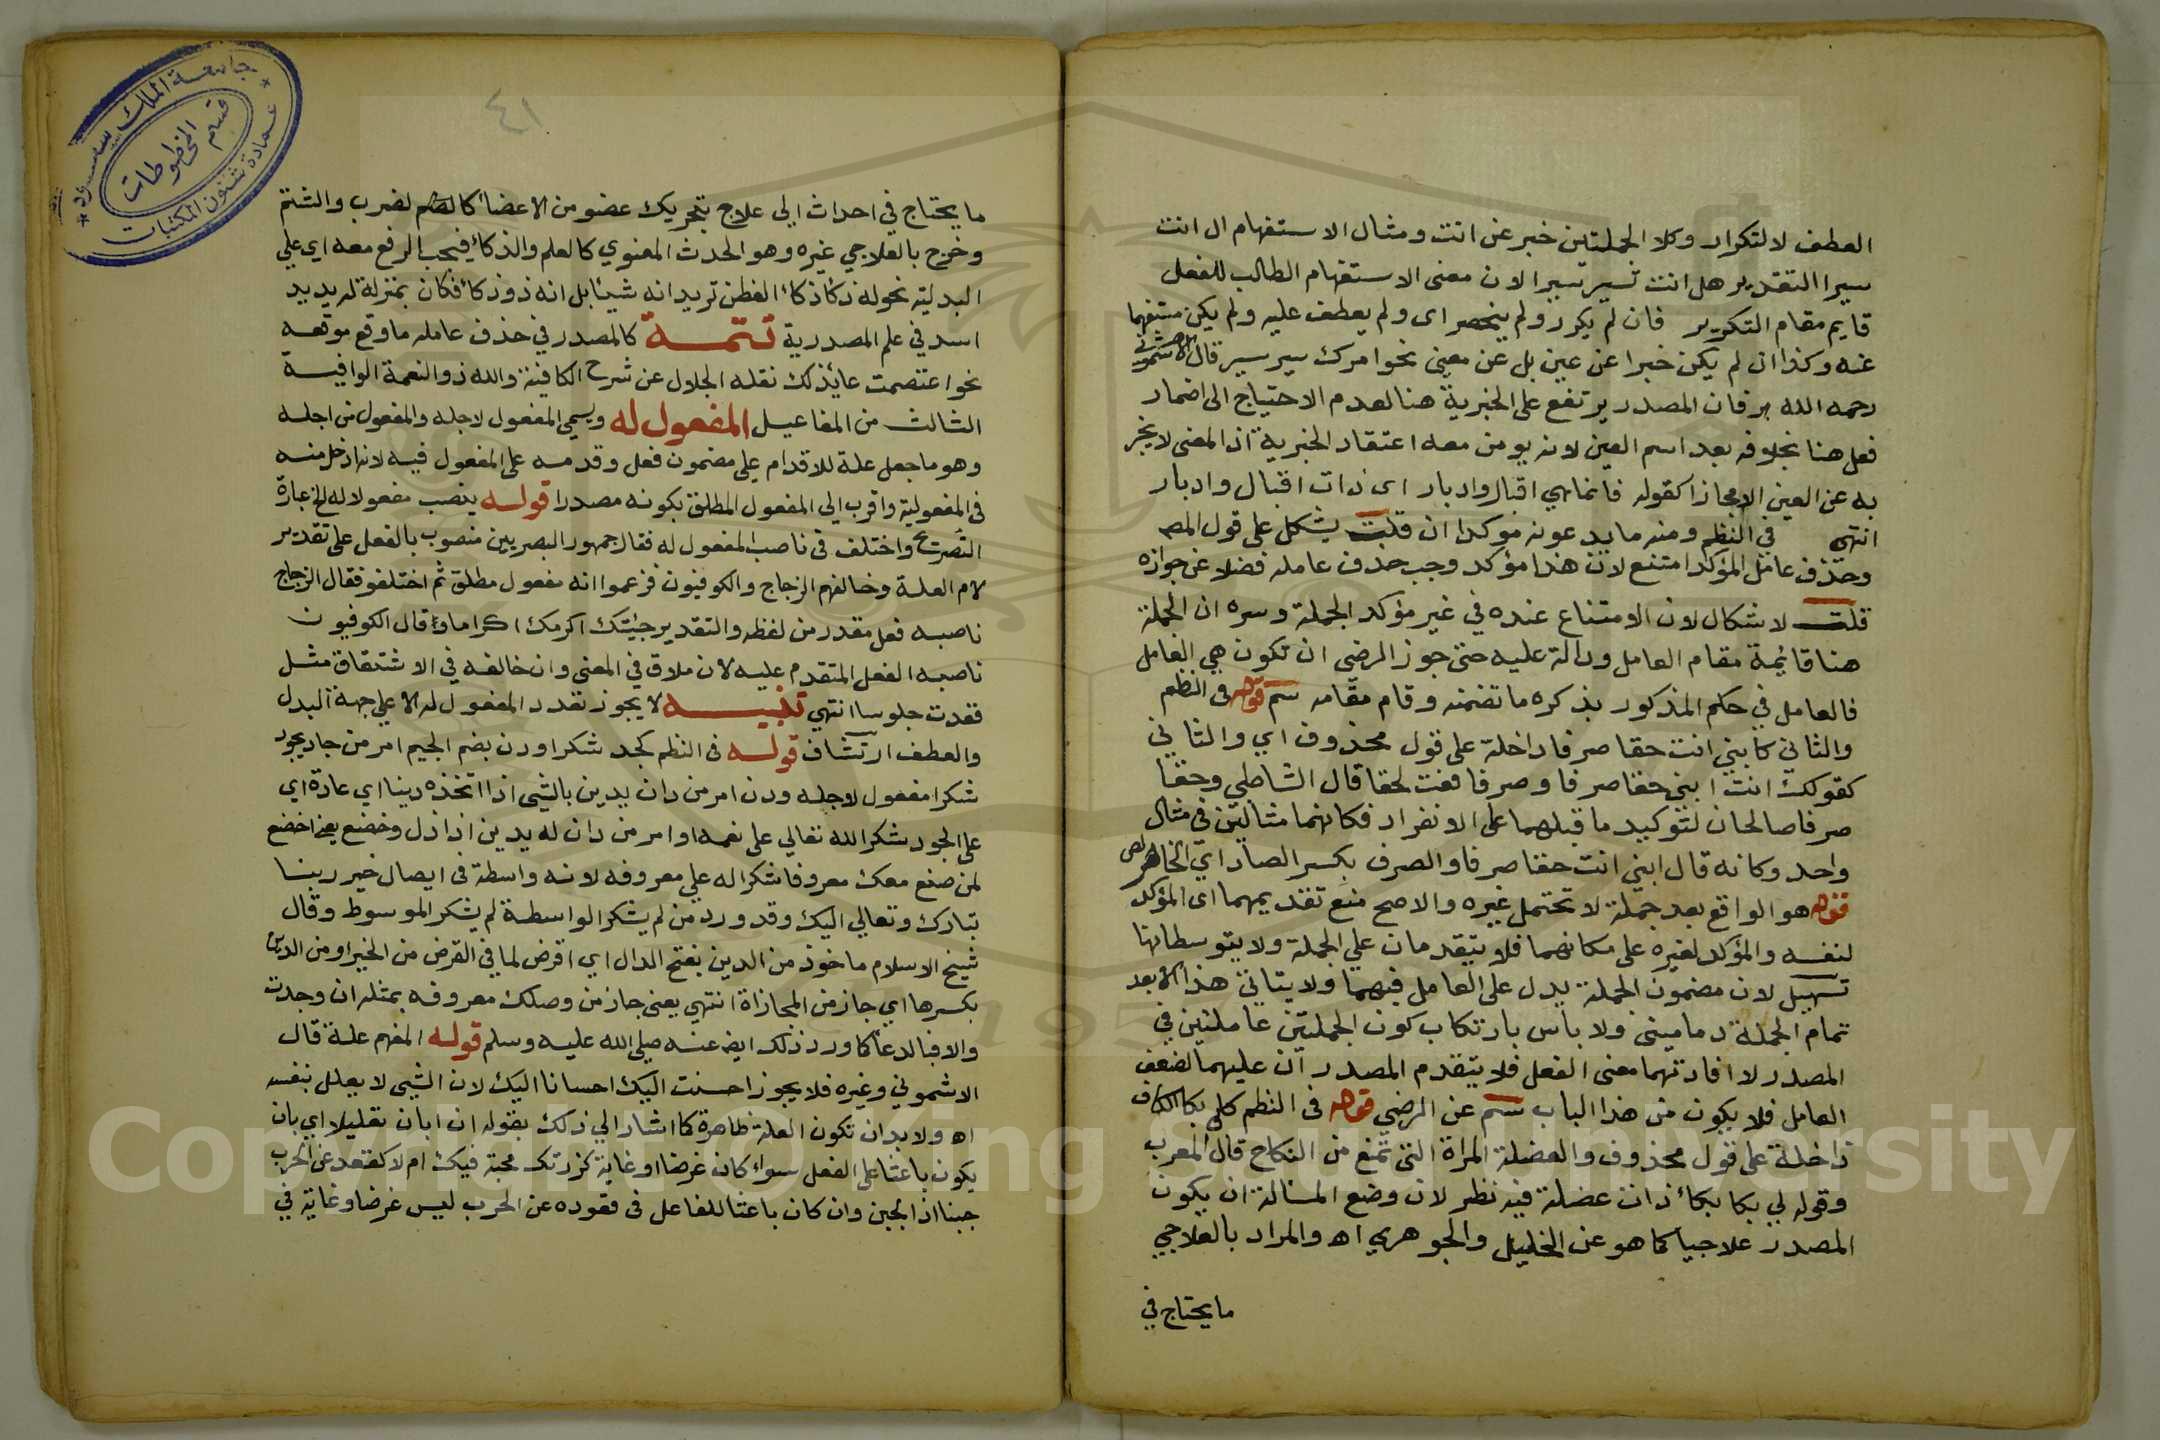 العطف لا لتكرار وكلا الجملتين خبر عن انت ومثال الاستفهام ال انت
سيرا التقدير هل انت تسير سيرا لان معنى الاستفهام الطالب للفعل
قايم مقام التكرير فان لم يكرر ولم ينحصر اى ولم يعطف عليه ولم يكن مستفهما
عنه وكذا ان لم يكن خبرا عن عين بل عن معنى نحوا مرك سير سير قال الاشمونى
رحمه الله فان المصدر يرتفع على الخبرية هنا لعدم الاحتياج الى اضمار
فعل هنا بخلافه بعد اسم العين لانه يومن معه اعتقاد الخبرية اذ المعنى لا يخبر
به عن العين الا مجازا كقوله فانما هي اقبال وادبار اى ذات اقبال وادبار
انتهى في النظم ومنه ما يدعونه موكدا ان قلت يشكل على قول المص
وحذف عامل المؤكد امتنع لان هذا مؤكد وجب حذف عامله فضلا عن جوازه
قلت لا شكال لان الامتناع عنده في غير مؤكد الجملة وسره ان الجملة
هنا قائمة مقام العامل ودالة عليه حتى جوز الرضى ان تكون هي العامل
فالعامل في حكم المذكور بذكره ما تضمنه وقام مقامه سم قوله فى النظم
والثاني كابني انت حقا صرفا داخلة على قول محذوف اي والثاني
كقولك انت ابني حقا صرفا وصرفا نعت لحقا قال الشاطبي وحقا
صرفا صالحان لتوكيد ما قبلهما على الانفراد فكانهما مثالين في مثال
واحد وكانه قال ابني انت حقا صرفا والصرف بكسر الصاد اي الخالص
قوله هو الواقع بعد جملة لا تحتمل غيره والاصح منع تقديمهما اى المؤكد
لنفسه والمؤكد لغيره على مكانهما فلا يتقدمان علي الجملة ولا يتوسطانها
تسهيل لان مضمون الجملة يدل على العامل فيهما ولا يتاتى هذا الا بعد
تمام الجملة دماميني ولا باس بارتكاب كون الجملتين عاملتين في
المصدر لافادتهما معنى الفعل فلا يتقدم المصدران عليهما لضعف
العامل فلا يكون من هذا الباب سم عن الرضى قوله فى النظم كلي بكا الكاف
داخلة على قول محذوف والعضلة المراة التى تمنع من النكاح قال المعرب
وقوله لي بكا بكاء ذات عضلة فيه نظر لان وضع المسالة ان يكون
المصدر علاجيا كما هو عن الخليل والجوهري اه والمراد بالعلاجي
ما يحتاج في
٤١
ما يحتاج في احداث الي علاج بتحريك عضو من الاعضا كا لضرب والشتم
وخرج بالعلاجي غيره وهو الحدث المعنوي كالعلم والذكاء فيجب الرفع معه اي علي
البدلية نحو له ذكاء ذكاء الفطن تريد انه شيئا بل انه ذو ذكاء فكان بمنزلة له يد يد
اسد في علم المصدرية تتمة كالمصدر في حذف عامله ما وقع موقعه
نحو اعتصمت عائذ ذلك نقله الجلال عن شرح الكافية والله ذو النعمة الوافية
الثالث من المفاعيل المفعول له ويسمى المفعول لاجله والمفعول من اجله
وهو ما جعل علة للاقدام علي مضمون فعل وقدمه على المفعول فيه لانه ادخل منه
فى المفعولية واقرب الي المفعول المطلق بكونه مصدرا قوله ينصب مفعولا له الخ عبارة
التصريح واختلف في ناصب المفعول له فقال جمهور البصريين منصوب بالفعل على تقدير
لام العلة وخالفهم الزجاج والكوفيون فزعموا انه مفعول مطلق ثم اختلفو فقال الزجاج
ناصبه فعل مقدر من لفظه والتقدير جئتك اكرمك اكراما وقال الكوفيون
ناصبه الفعل المتقدم عليه لان ملاق في المعنى وان خالفه في الاشتقاق مثل
قعدت جلوسا انتهي تنبيه لا يجوز تعدد المفعول له الا علي جهة البدل
والعطف ارتشاف قوله فى النظم كجد شكرا ودن بضم الجيم امر من جاد يجود
شكرا مفعول لاجله ودن امر من دان يدين بالشى اذا اتخذه دينا اي عادة اي
على الجود شكرا لله تعالي على نعمه او امر من دان له يدين اذا ذل وخضع يعنى اخضع
لمن صنع معك معروفا شكرا له علي معروفه لانه واسطة فى ايصال خير ربنا
تبارك وتعالي اليك وقد ورد من لم يشكر الواسطة لم يشكر الموسوط وقال
شيخ الاسلام ماخوذ من الدين بفتح الدال اي اقرض لما في القرض من الخير او من الدين
بكسرها اي جاز من المجازاة انتهي يعنى جاز من وصلك معروفه بمثله ان وجدت
والا فبالدعا كما ورد ذلك ايضا عنه صلي الله عليه وسلم قوله المفهم علة قال
الاشموني وغيره فلا يجوز احسنت اليك احسانا اليك لان الشيى لا يعلل بنفسه
اه ولا بد ان تكون العلة ظاهرة كما اشار الي ذلك بقوله ان ابان تعليلا اي بان
يكون باعثا على الفعل سواء كان غرضا او غاية كزرتك محبة فيك ام لا كقعد عن الحرب
جبنا اذ الجبن وان كان باعثا للفاعل فى قعوده عن الحرب ليس غرضا وغاية في
جامعة الملك سعود
قسم المخطوطات
عمادة شئون المكتبات
Copyright © King Saud University